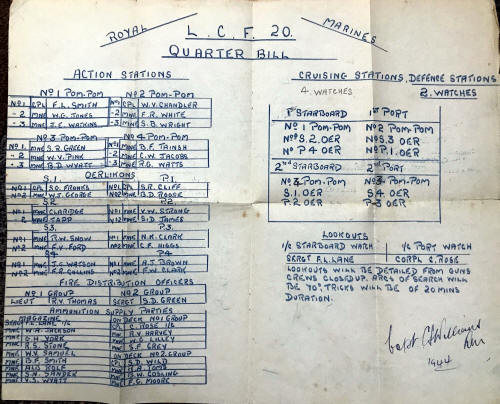 ROYAL L.C.F. 20. MARINES
QUARTER BILL
ACTION STATIONS
No 1 POM-POM No 2 POM-POM
No 1 CPL F.L. SMITH No 1 CPL W.V. CHANDLER
- 2 MNE W.G. JONES - 2 MNE F.R. WHITE
- 3 MNE J.E. WATKINS - 3 MNE S.B. WRIGHT
No 3 POM-POM No 4 POM-POM
No 1. MNE S.R. GREEN No 1 MNE B.F. TAINSH
- 2 MNE W.V. PINK - 2 MNE C.W. JACOBS
- 3 MNE B.D. WYATT - 3 MNE R.G. WATTS
OERLIKONS
S.1 P.1
No 1 CPL S.G. FRANKS No 1 CPL S.R. CLIFF
No 2 MNE W.J. GEORGE No 2 MNE B.D. ROOSE
S.2 P.2
No 1 MNE CLARIDGE No 1 MNE V.W. STRONG
No 2 MNE TAPP No 2 MNE S.D. JAMES
S.3 P.3
No 1 MNE R.W. SNOW No 1 MNE N.H. CLARK
No 2 MNE F.V. FORD No 2 MNE C.F. HIGGS
S.4 P.4
No 1 MNE J.C. WATSON No 1 MNE A.J. BROWN
No 2 MNE F.R. COLLINS No 2 MNE F.W. CLARK
FIRE DISTRIBUTION OFFICERS
No 1 GROUP No 2 GROUP
LIEUT R.V. THOMAS SERGT S.D. GREEN
AMMUNITION SUPPLY PARTIES
MAGAZINE ON DECK No 1 GROUP
SERGT F.L. LANE I/C CPL C. ROSE I/C
MNE W.A. JACKSON MNE R.V. HARVEY
MNE G.H. YORK MNE W.G. LILLEY
MNE R.S. STONE MNE S.F. GREY
MNE W.V. SAMUEL ON DECK No 2 GROUP
MNE D.F. SMITH CPL S.D. WILD
MNE ROLF MNE R.N. TOMS
MNE S.N. SANDER MNE B.W. GOSLING
MNE V.S. WYATT MNE F.G. MOORE
CRUISING STATIONS, DEFENCE STATIONS
4 WATCHES 2. WATCHES
1ST STARBOARD 1ST PORT
No 1 POM-POM No 2 POM-POM
No S.2. OER No S.3 OER
No P.4 OER No P.1. OER
2ND STARBOARD 2ND PORT
No 3 POM-POM No 4 POM-POM
S.1. OER S.4. OER
P.2. OER P.3 OER
LOOKOUTS
I/C STARBOARD WATCH I/C PORT WATCH
SERGT F.L. LANE CORPL C. ROSE
LOOKOUTS WILL BE DETAILED FROM GUNS
CREWS CLOSED UP. ARCS OF SEARCH WILL
BE 90°. TRICKS WILL BE OF 20 MINS
DURATION.
Capt Williams
RM
1944